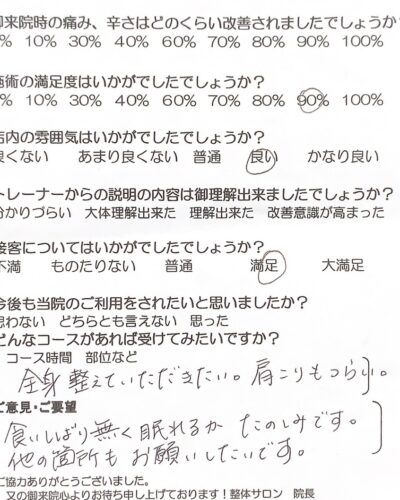 御来院時の痛み、辛さはどのくらい改善されましたでしょうか?
% 10% 30% 40% 60% 70% 80% 90% 100%
施術の満足度はいかがでしたでしょうか?
% 10% 30% 40% 60% 70% 80% 90% 100%
店内の雰囲気はいかがでしたでしょうか?
良くない あまり良くない 普通 良い かなり良い
トレーナーからの説明の内容は御理解出来ましたでしょうか?
分かりづらい 大体理解出来た 理解出来た 改善意識が高まった
接客についてはいかがでしたでしょうか?
不満 ものたりない 普通 満足 大満足
今後も当院のご利用をされたいと思いましたか?
思わない どちらとも言えない 思った
どんなコースがあれば受けてみたいですか?
コース時間 部位など
全身整えていただきたい。肩こりもつらい。
ご意見・ご要望
食いしばり無く眠れるか たのしみです。
他の箇所も お願いしたいです。
ご協力ありがとうございました。
又の御来院心よりお待ち申し上げております!整体サロン 院長